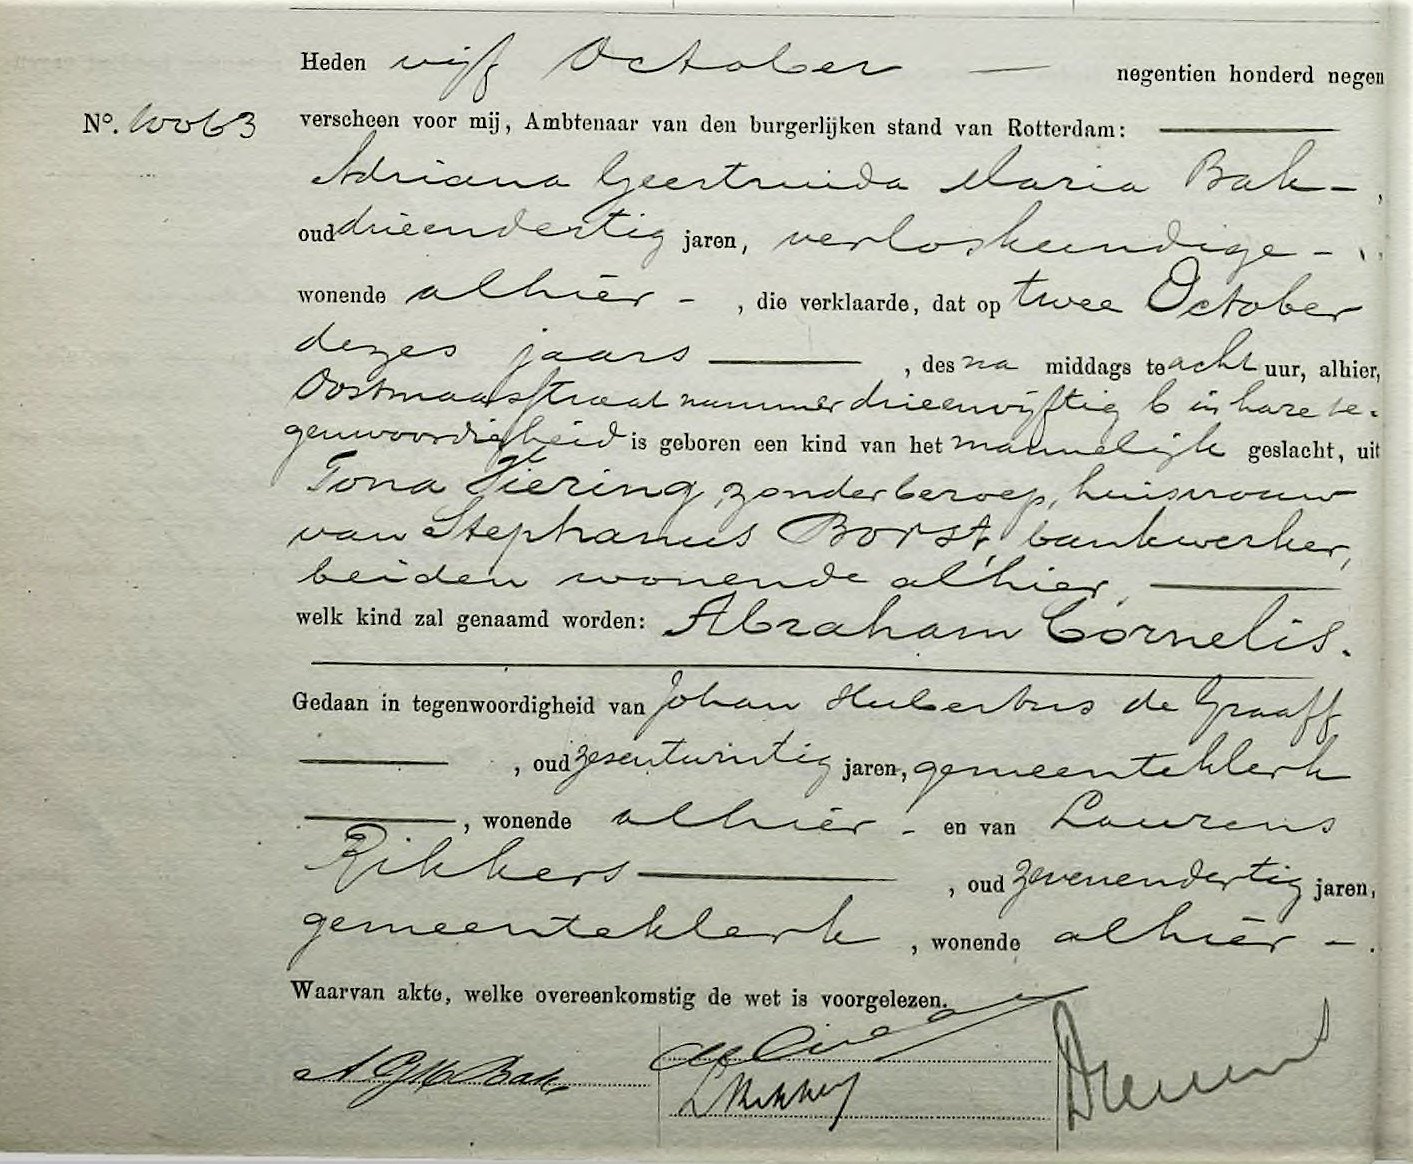 Heden vijf October — negentien honderd negen
No. 10063 verscheen voor mij, Ambtenaar van den burgerlijken stand van Rotterdam:
Adriana Geertruida Maria Bak - ,
oud drieendertig jaren, verloskundige - ,
wonende alhier - , die verklaarde, dat op twee October
dezes jaars — , des na middags te acht uur, alhier,
Oostmaasstraat nummer drieenvijftig b in hare te-
genwoordigheid is geboren een kind van het mannelijk geslacht, uit
Tona Tiering, zonder beroep, huisvrouw
van Stephanus Borst, bankwerker,
beiden wonende alhier,
welk kind zal genaamd worden: Abraham Cornelis.
Gedaan in tegenwoordigheid van Johan Hubertus de Graaff
, oud zesentwintig jaren, gemeenteklerk
, wonende alhier - en van Laurens
Rikkers — , oud zevenendertig jaren,
gemeenteklerk , wonende alhier - .
Waarvan akte, welke overeenkomstig de wet is voorgelezen.
A G M Bak
L Rikkers